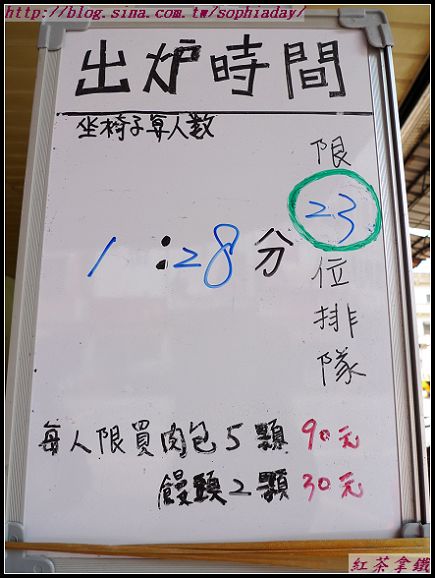 http://blog.sina.com.tw/sophiaday/
出炉時間
坐椅子算人数
限23位排隊
1:28分
每人限買肉包5顆90元
饅頭2顆30元
紅茶拿鐵